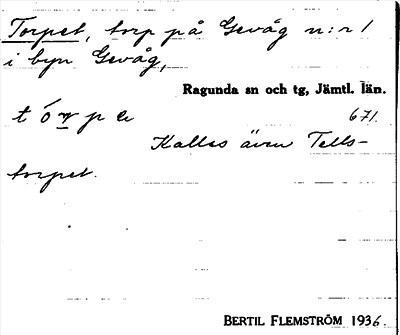 Torpet, torp på Gevåg n:r 1
i byn Gevåg,
Ragunda sn och tg, Jämtl. län.
tórpe
671.
Kallas även Tells-
torpet.
BERTIL FLEMSTRÖM 1936.